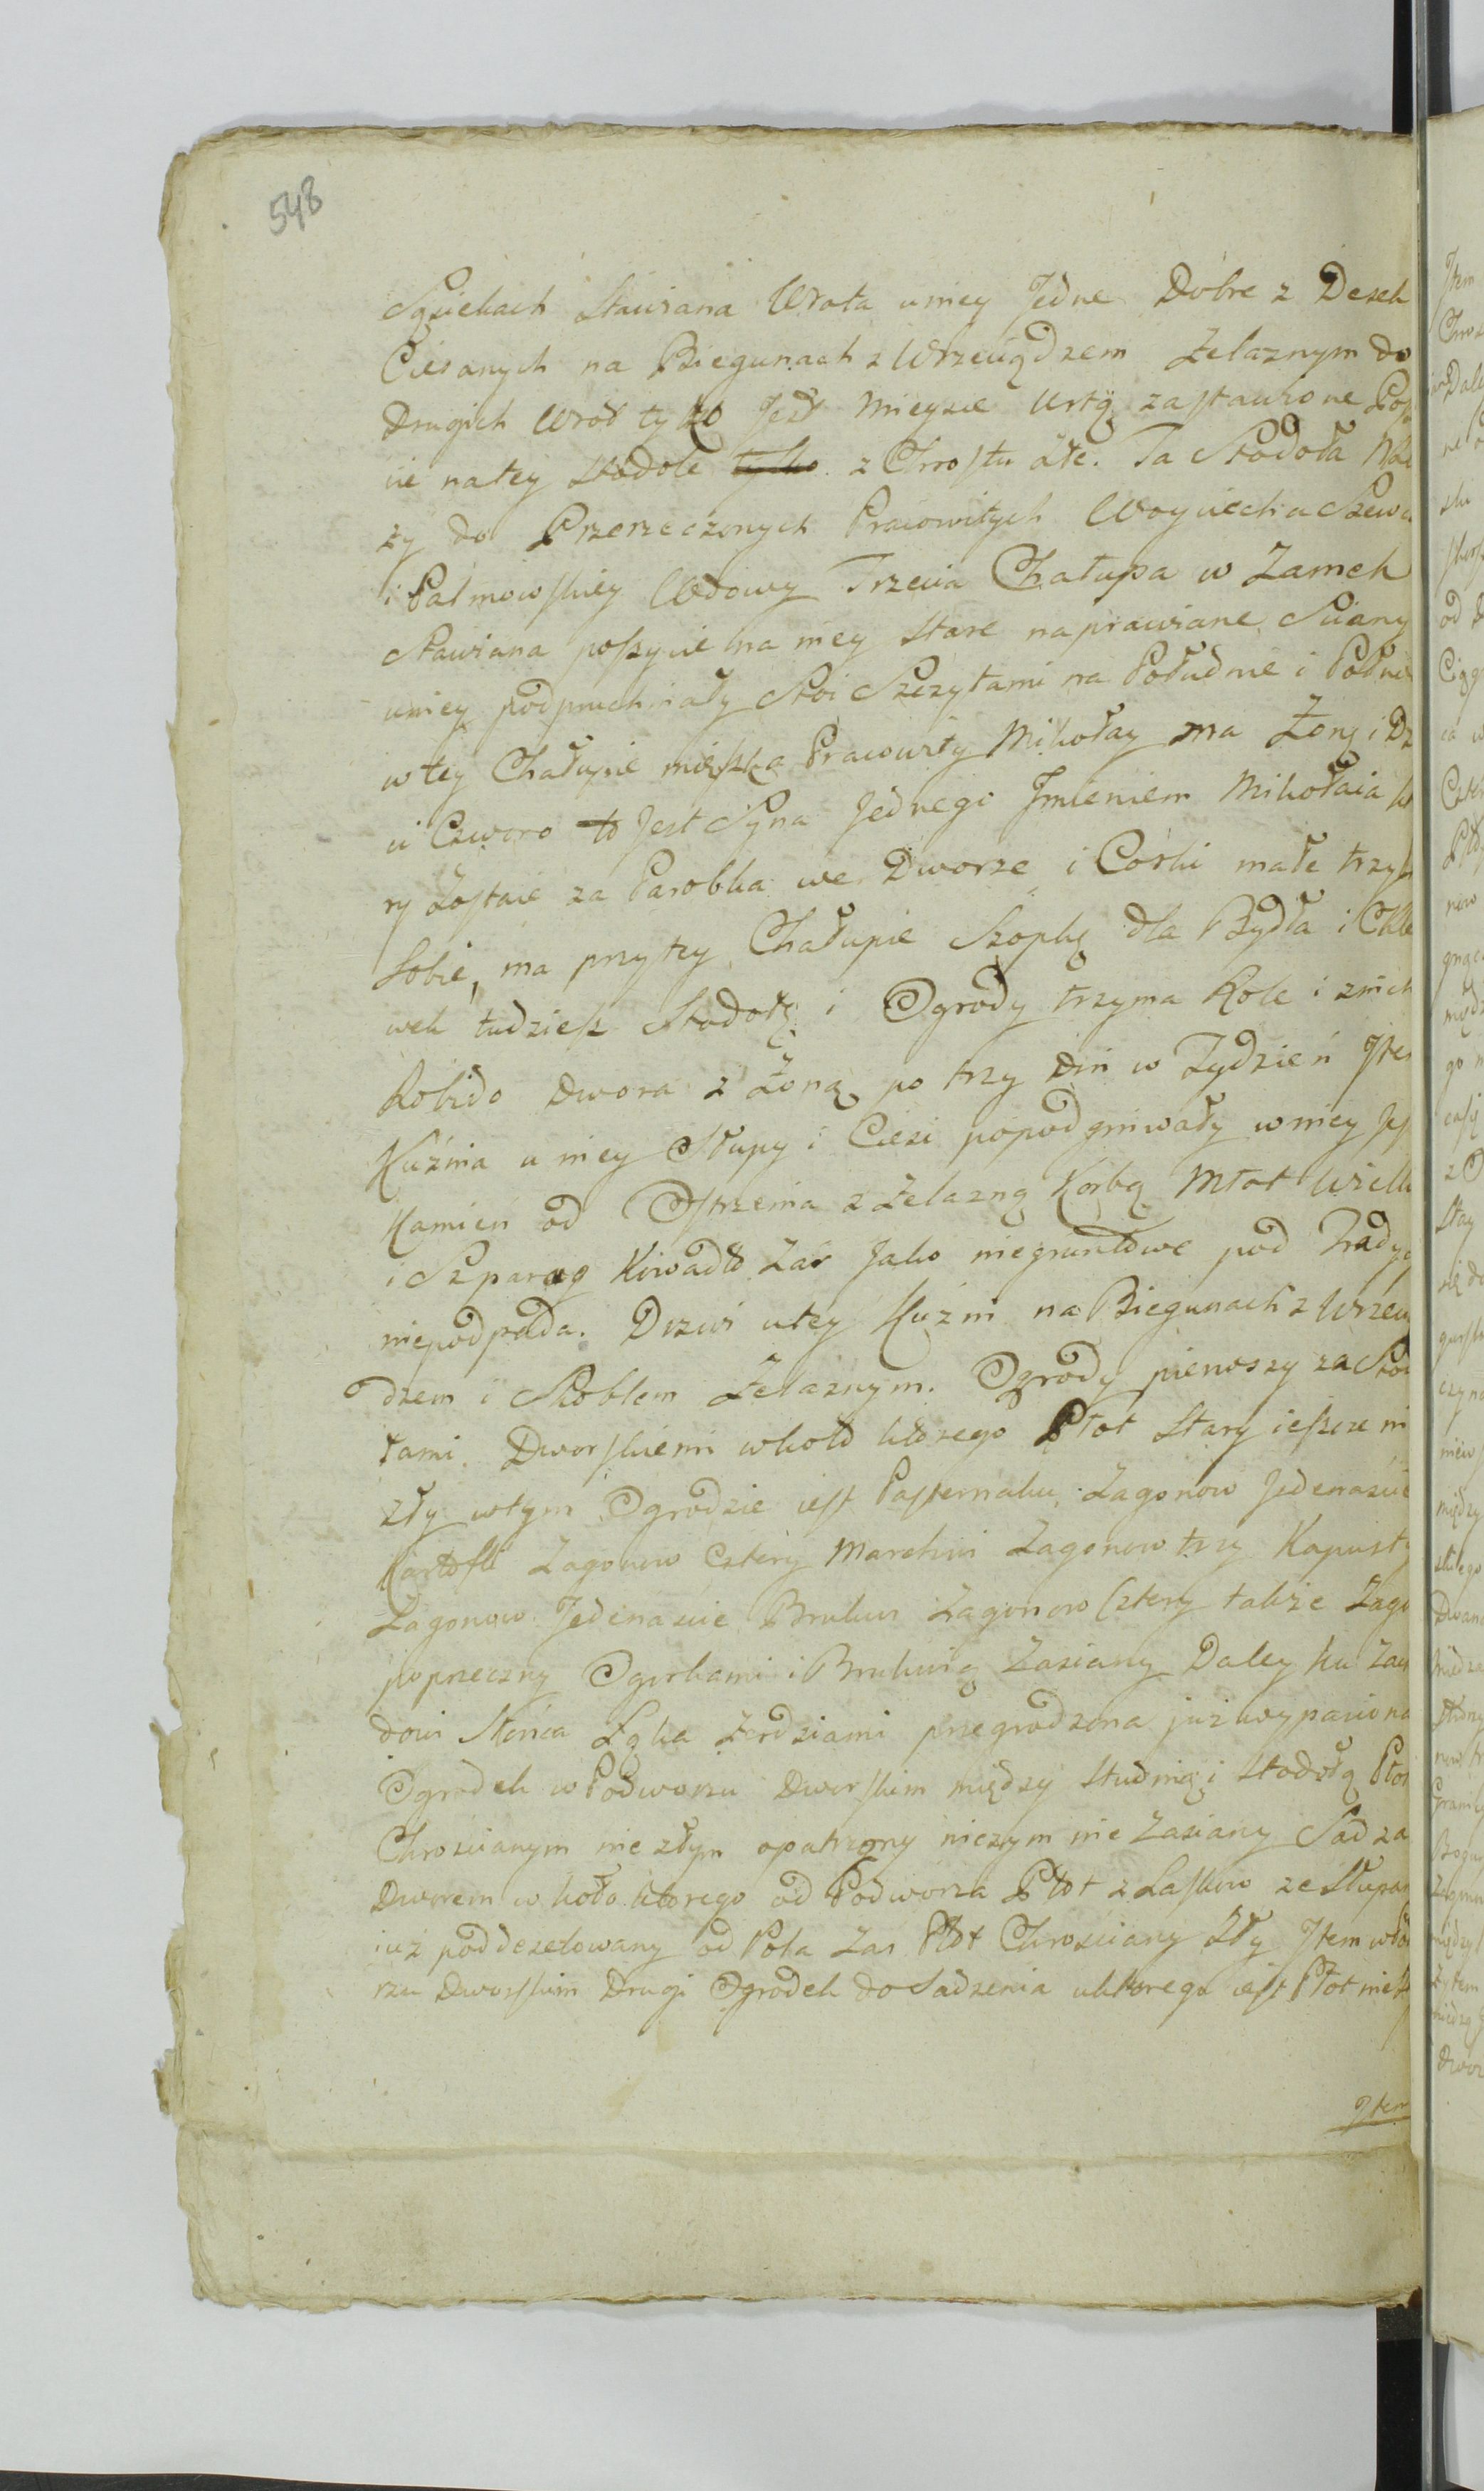 548
Sąsiekach Stawiana Wrota uniey Jedne Dobre z Desek
Ciesanych na Biegunach z Wrzeciądzem Zelaznym do
Drugich Wrot tylko Jest Mieysce zastawione
cie natey Stodole tylko z Chrostu złe. Ta Stodoła
zy do Przerzeczonych Pracowitych Woyciecha
i Palmowskiey Wdowy Trzecia Chałupa w Zamek
Stawiana poszycie na niey Stare naprawiane Sciany
uniey podpruchniały Stoi Szczytami na Południe i
wtey Chałupie mięszka Pracowity Mikołay ma Zonę i
ci Czworo to Jest Syna Jednego Imieniem Mikołaia
ry Zostaie za Parobka we Dworze i Corki małe trzy
Sobie, ma przytey Chałupie Szopkę dla Bydła i Chle
wek tudziesz Stodołę i Ogrody trzyma Role i znich
Robi do Dwora z Żoną po trzy Dni w Tydzień
Kuźnia u niey Słupy i Ciesi popodgniwały w niey
Kamien od Ostrzenia z Zelazną Korbą Młot
i Szparog Kowadło Zaś Jako niegruntowe pod
niepodpada. Drzwi utey Kuzni na Biegunach z
dzem i Skoblem Żelaznym. Ogrody pierwszy za
łami Dworskiemi wkoło ktorego Płot Stary ieszcze ni
zły wtym Ogrodzie iest Pasternaku Zagonow Jedenascie
Kartofli Zagonow Cztery Marchwi Zagonow trzy Kapusty
Zagonow Jedenascie Brukwi Zagonow Cztery takze
poprzeczny Ogorkami i Brukwią Zasiany Daley ku
dowi Słońca Łąka Zerdziami przegrodzona już wypasiona
Ogrodek w Podworzu Dworskim między Studnią i Stodołą
Chroscianym nie złym opatrzony niczym nie Zasiany Sad za
Dworem w koło ktorego od Podworza Płot z Lasków ze
iuż poddezelowany od Pola Zas Płot Chrosciany Zły Item
rzu Dworskim Drugi Ogrodek do Sadzenia uktorego iest Płot
Item